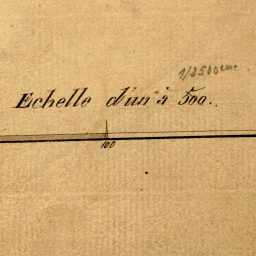 1/2500ème
Echelle d'un à 500.
100